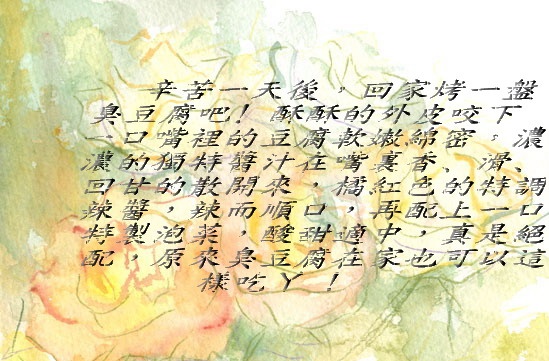 辛苦一天後，回家烤一盤
臭豆腐吧！酥酥的外皮咬下
一口嘴裡的豆腐軟嫩綿密，濃
濃的獨特醬汁在嘴裏香、滑、
回甘的散開來，橘紅色的特調
辣醬，辣而順口，再配上一口
特製泡菜，酸甜適中，真是絕
配，原來臭豆腐在家也可以這
樣吃丫！